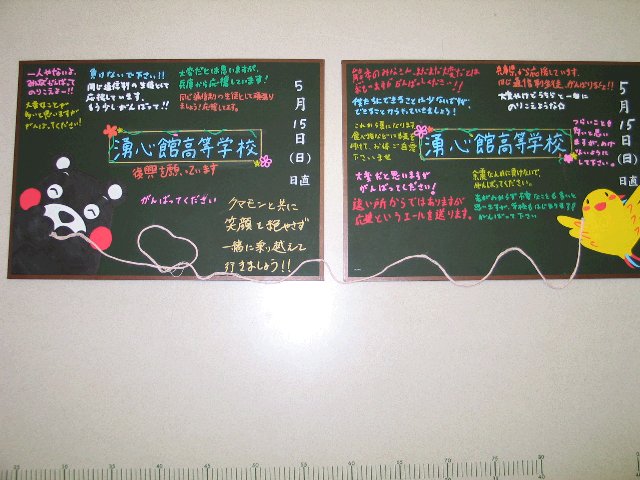 一人やないよ、
みんなでがんばって
のりこえよー!!
大変なことが
多いと思いますが
がんばってください!
負けないで下さい!!
同じ通信制の生徒として
応援しています。
もう少しがんばって!!
大変だとは思いますが、
兵庫から応援しています!
同じ通信制の生徒として頑張り
ましょう!応援してます。
5月15日(日)
日直
湧心館高等学校
復興を願っています
がんばってください
クマモンと共に
笑顔を絶やさず
一緒に乗り越えて
行きましょう!!
熊本のみなさん、まだまだ大変だとは
僕たちにできることは少ないですが、
できることからやっていきましょう!
これから夏になります。
兵庫県から応援しています。
同じ通信制生徒、がんばりましょ!!
大変やけどうちらと一緒に
のりこえよう
5月15日(日)
日直
湧心館高等学校
つらいことも
多いと思い
ますが、めげ
ないように
して下さい。
大変だと思いますが
がんばってください!
遠い所からではありますが
応援というエールを送ります。
余震なんかに負けないで、
がんばってください。
がんばって下さい